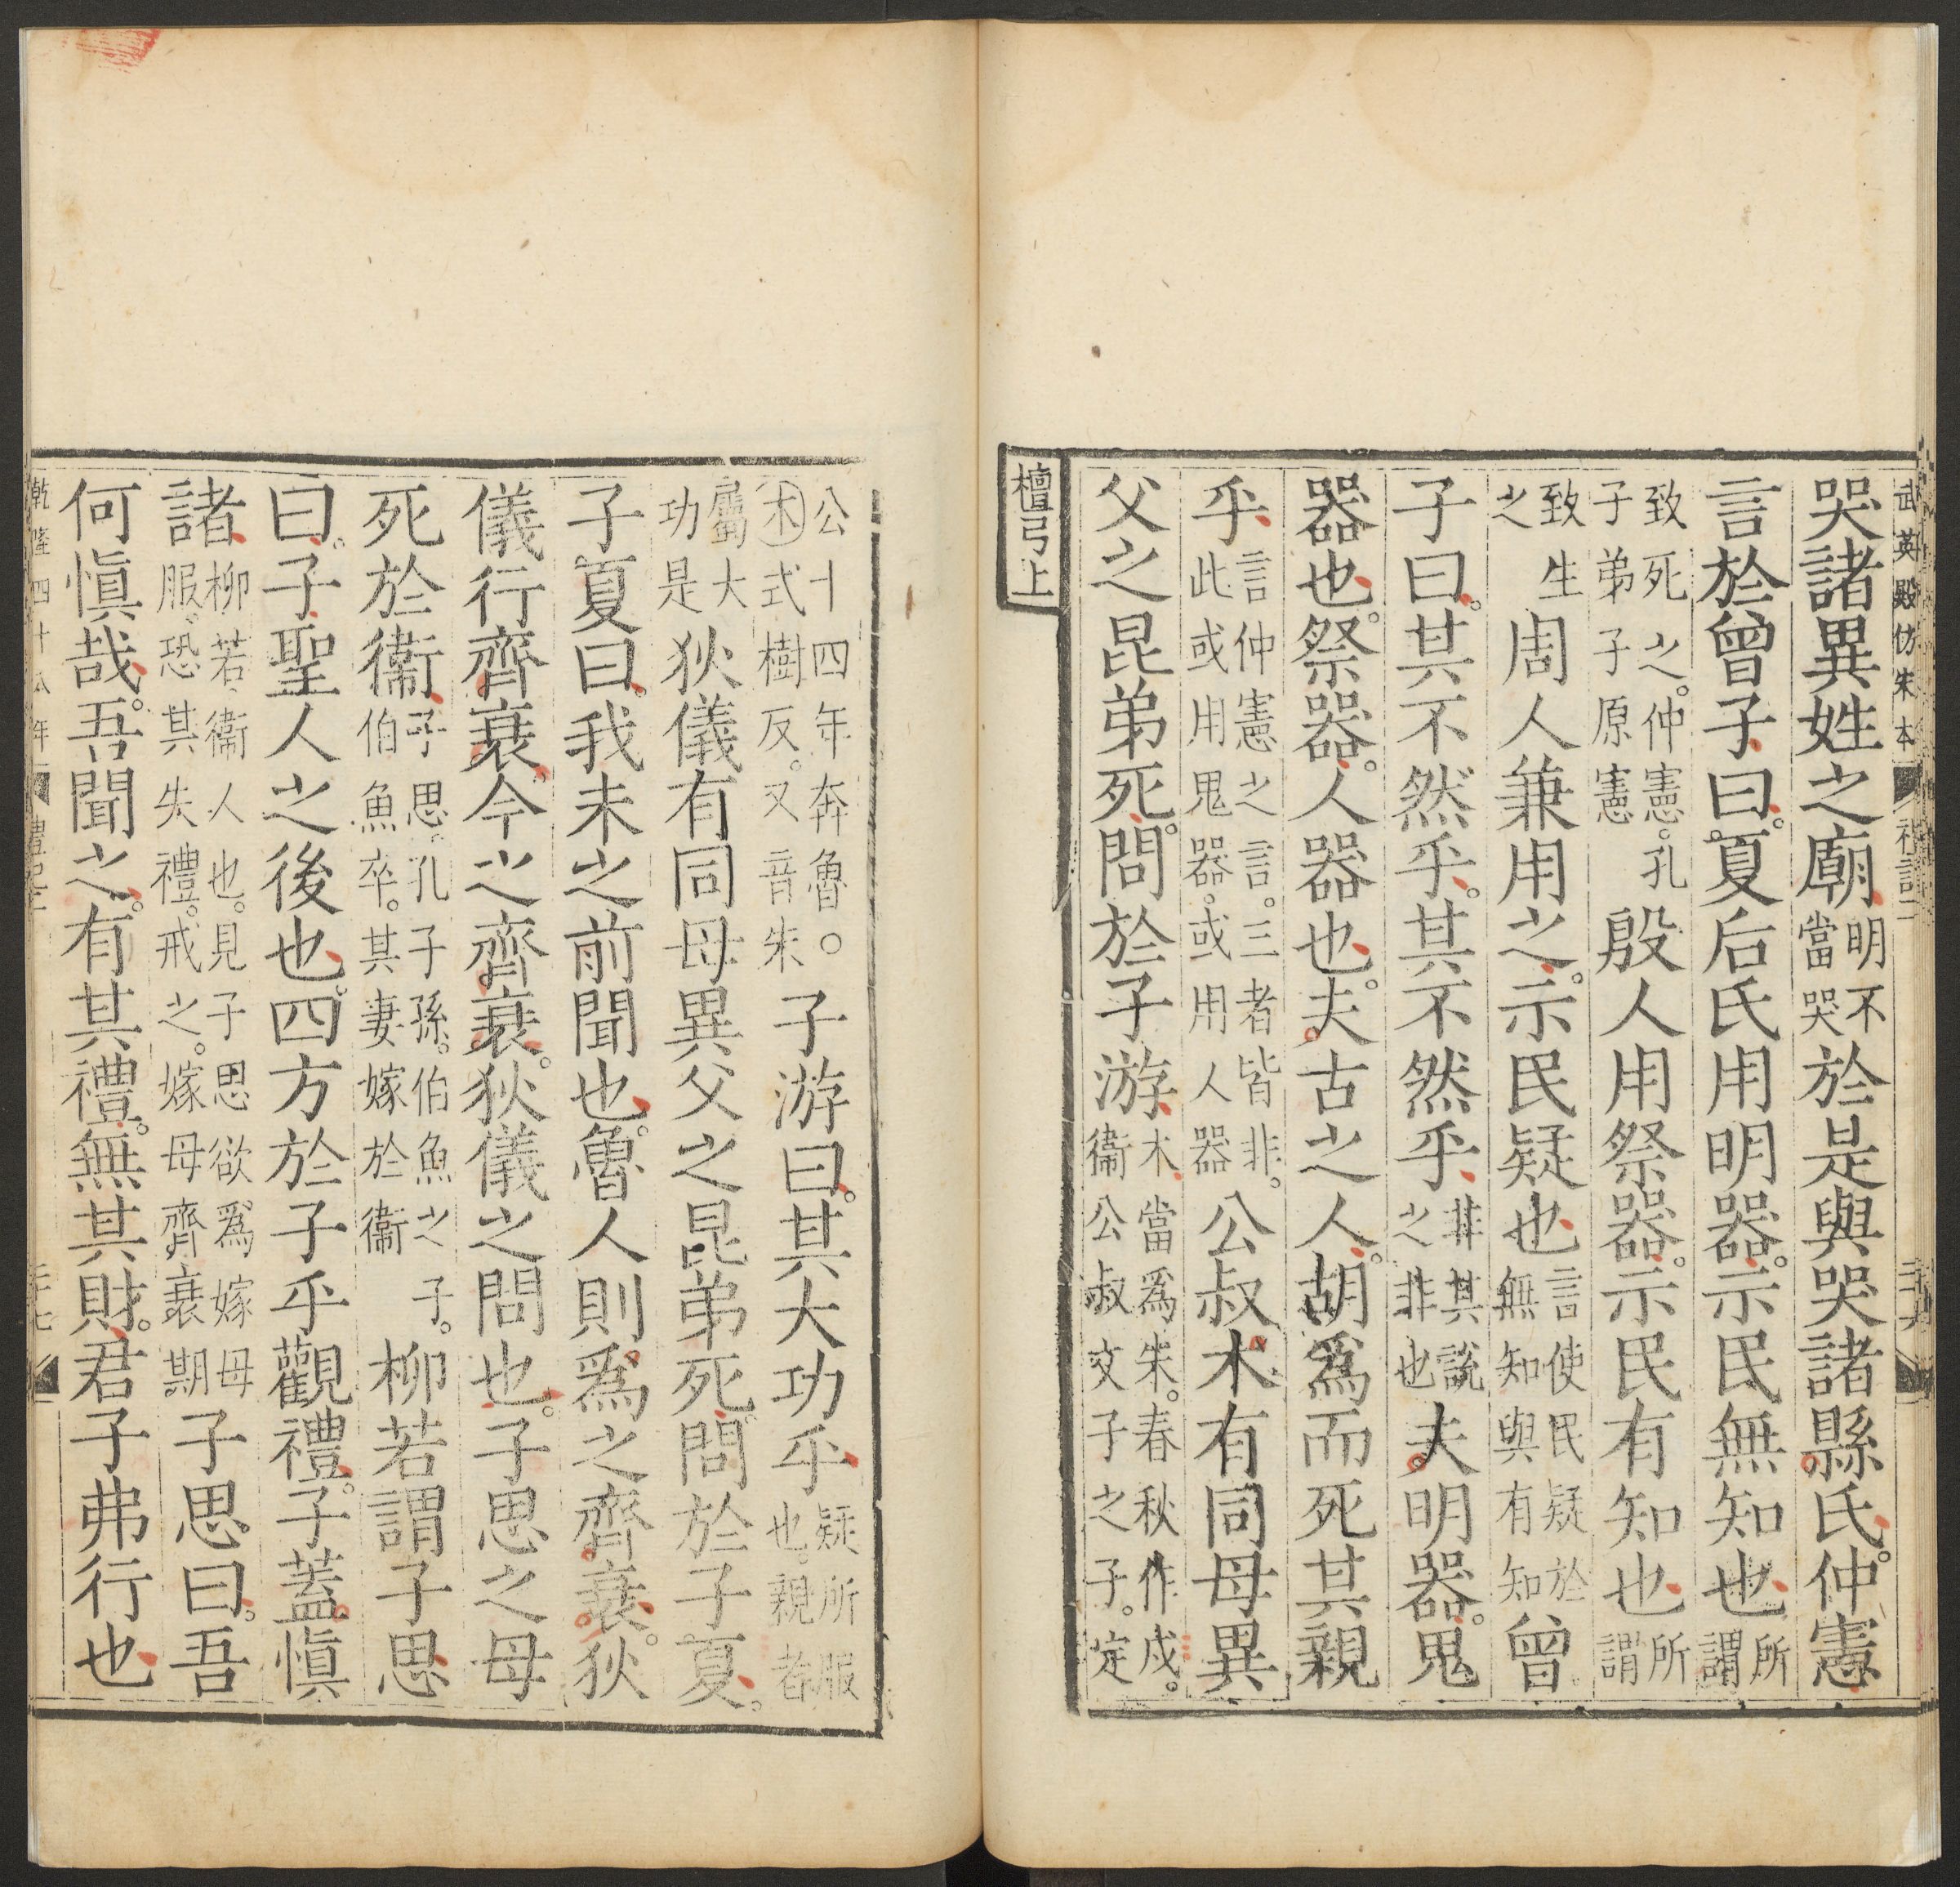 武英殿仿宋本
哭諸異姓之廟明不當哭於是與哭諸縣氏。仲憲
言於曾子曰。夏后氏用明器。示民無知也所謂
致死之。仲憲。孔子弟子原憲殷人用祭器。示民有知也所謂
致生之周人兼用之。示民疑也言使民疑於無知與有知曾
子曰。其不然乎。其不然乎非其說之非也夫明器。鬼
器也。祭器。人器也。夫古之人。胡爲而死其親
乎言仲憲之言。三者皆非。此或用鬼器。或用人器公叔木有同母異
父之昆弟死。問於子游木當爲朱。春秋作戍。衞公叔文子之子。定
檀弓上
公十四年奔魯。○木式樹反。又音朱子游曰。其大功乎疑所服也。親者
屬大功是狄儀有同母異父之昆弟死。問於子夏。
子夏曰。我未之前聞也。魯人則爲之齊衰。狄
儀行齊衰。今之齊衰。狄儀之問也。子思之母
死於衞子思。孔子孫。伯魚之子。伯魚卒。其妻嫁於衞柳若謂子思
曰。子聖人之後也。四方於子乎觀禮。子蓋愼
諸柳若。衞人也。見子思欲爲嫁母服。恐其失禮。戒之。嫁母齊衰期子思曰。吾
何愼哉。吾聞之。有其禮。無其財。君子弗行也
乾隆四十八年
禮記二
二十七